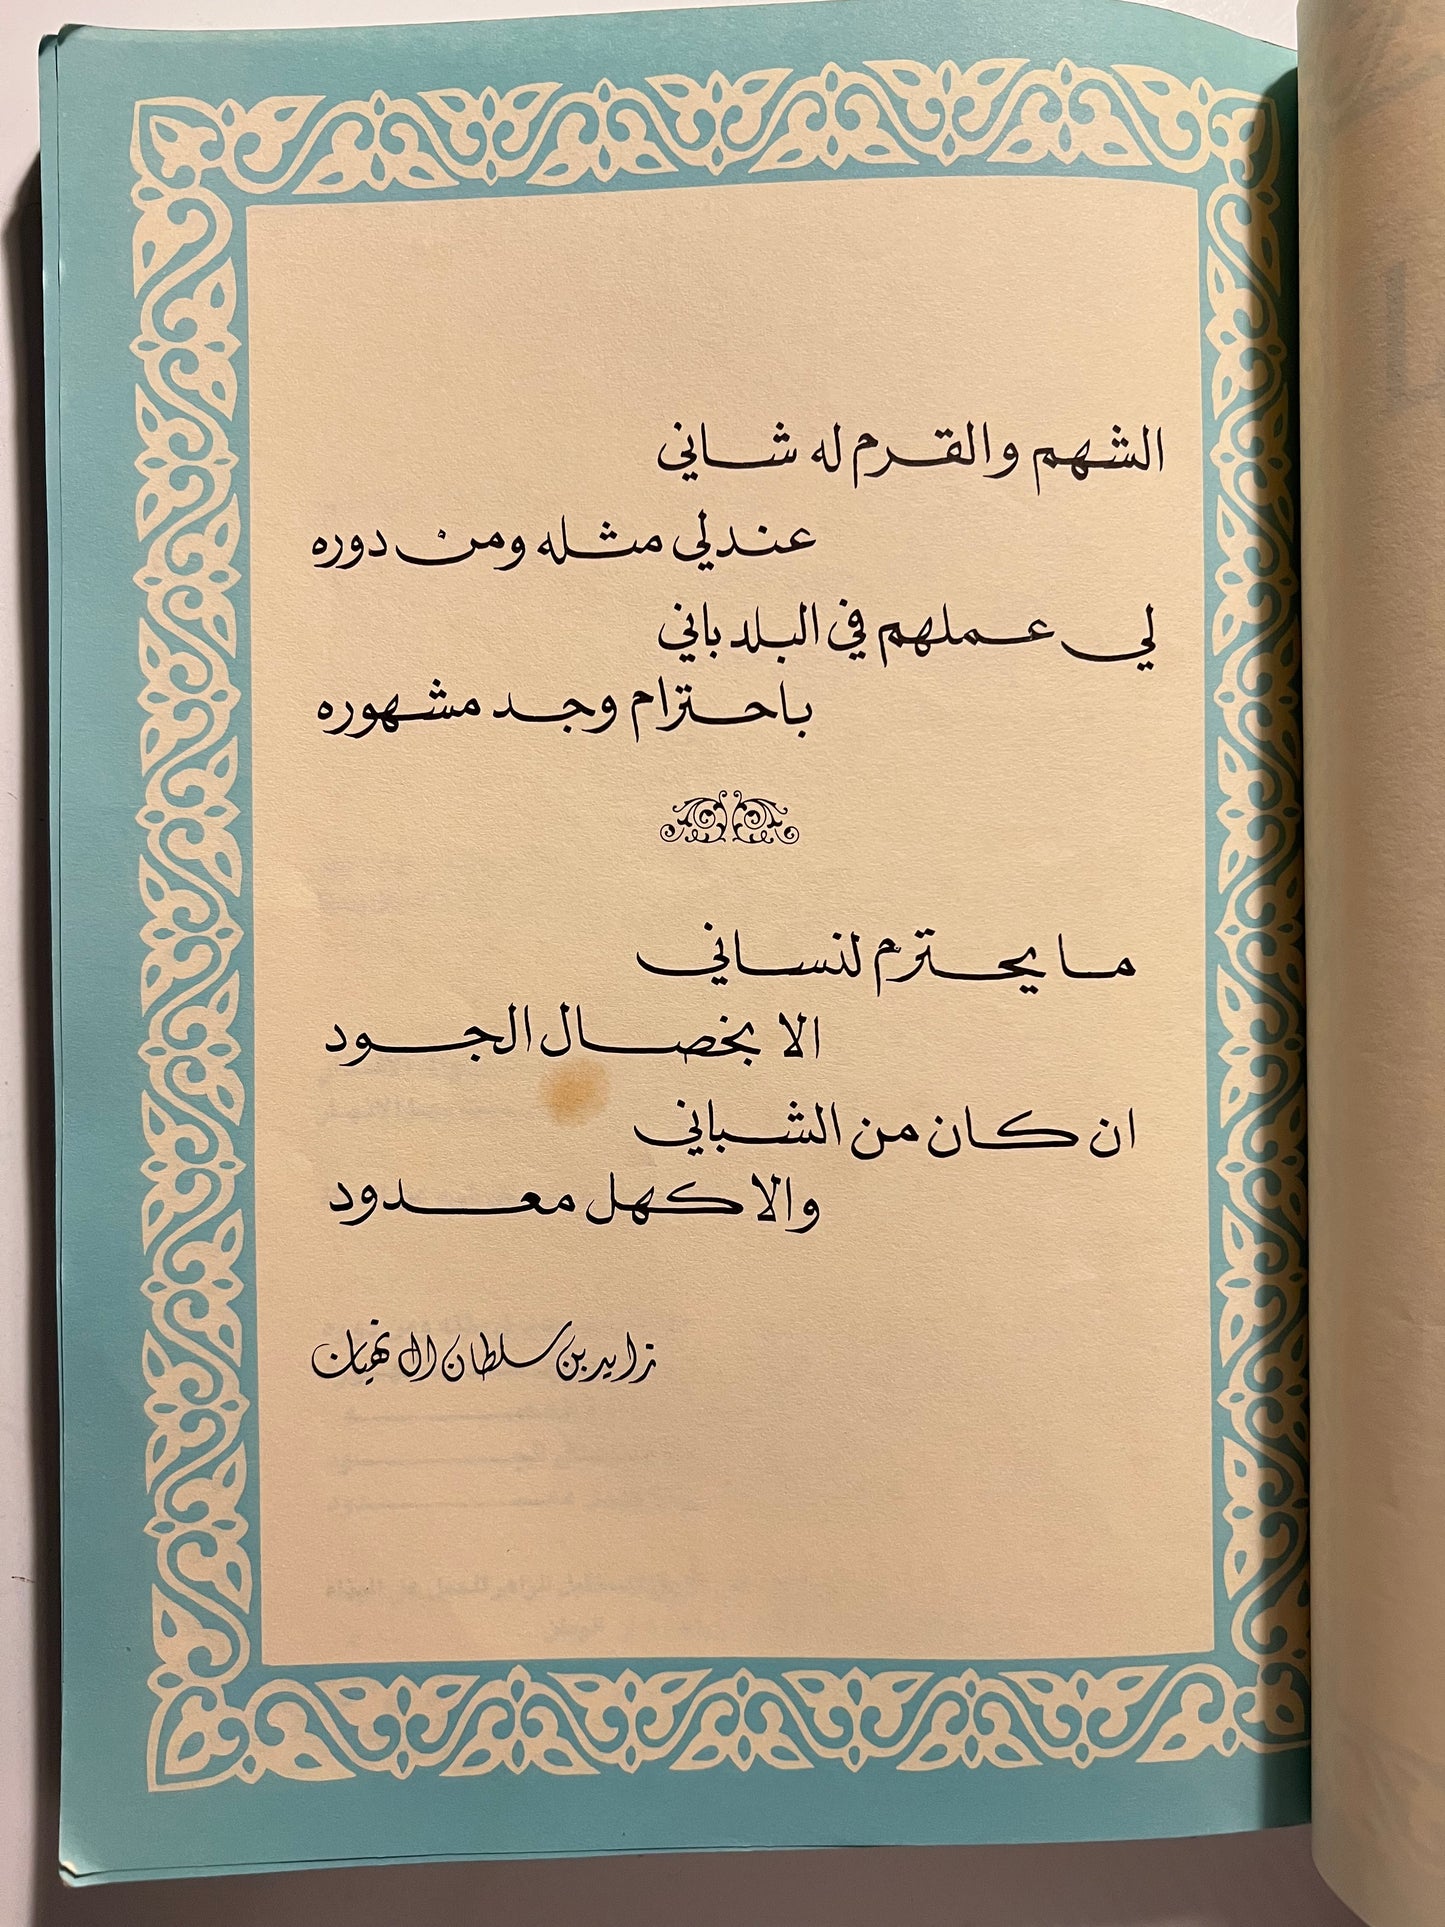 الشهم والقرم له شاني
عندلي مثله ومن دوره
لي عملهم في البلد باني
باحترام وجد مشهوره
ما يحترم لنساني
الا بخصال الجود
ان كان من الشباني
والا كهل معدود
زايد بن سلطان ال نهيان